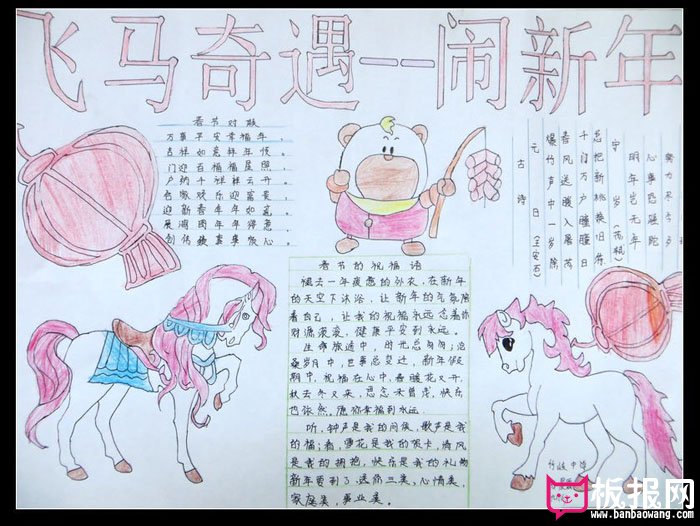 飞马奇遇——闹新年
春节对联
万事平安幸福年，
吉祥如意祥年悦。
门迎百福福星照，
户纳千祥祥云开。
合家欢乐迎富贵，
迎新春年年如意。
展鸿图年年得意
古诗
元日（王安石）
爆竹声中一岁除
春风送暖入屠苏
千门万户瞳瞳日
总把新桃换旧符
守岁（苏轼）
明年岂无年
心事恐蹉跎
努力尽
春节的祝福语
褪去一年疲惫的外衣，在新年
的天空下沐浴，让新年的气氛除
着自己，让我的祝福永远
对你滚滚，健康平安到永远。
生命旅途中，时光总匆匆；沧
桑岁月中，世事总变迁，新年假
期中，祝福在心中，春暖花又开，
秋去冬又来，思念未曾改，快乐
也依然。愿你幸福到永远
听，钟声是我的问候，歌声是我
的福；看，雪花是我的贺卡，清风
是我的拥抱，快乐是我的礼物
新年要到了，送你三类，心情类，
家庭类，事业类。
板报网
www.banbaowang.com